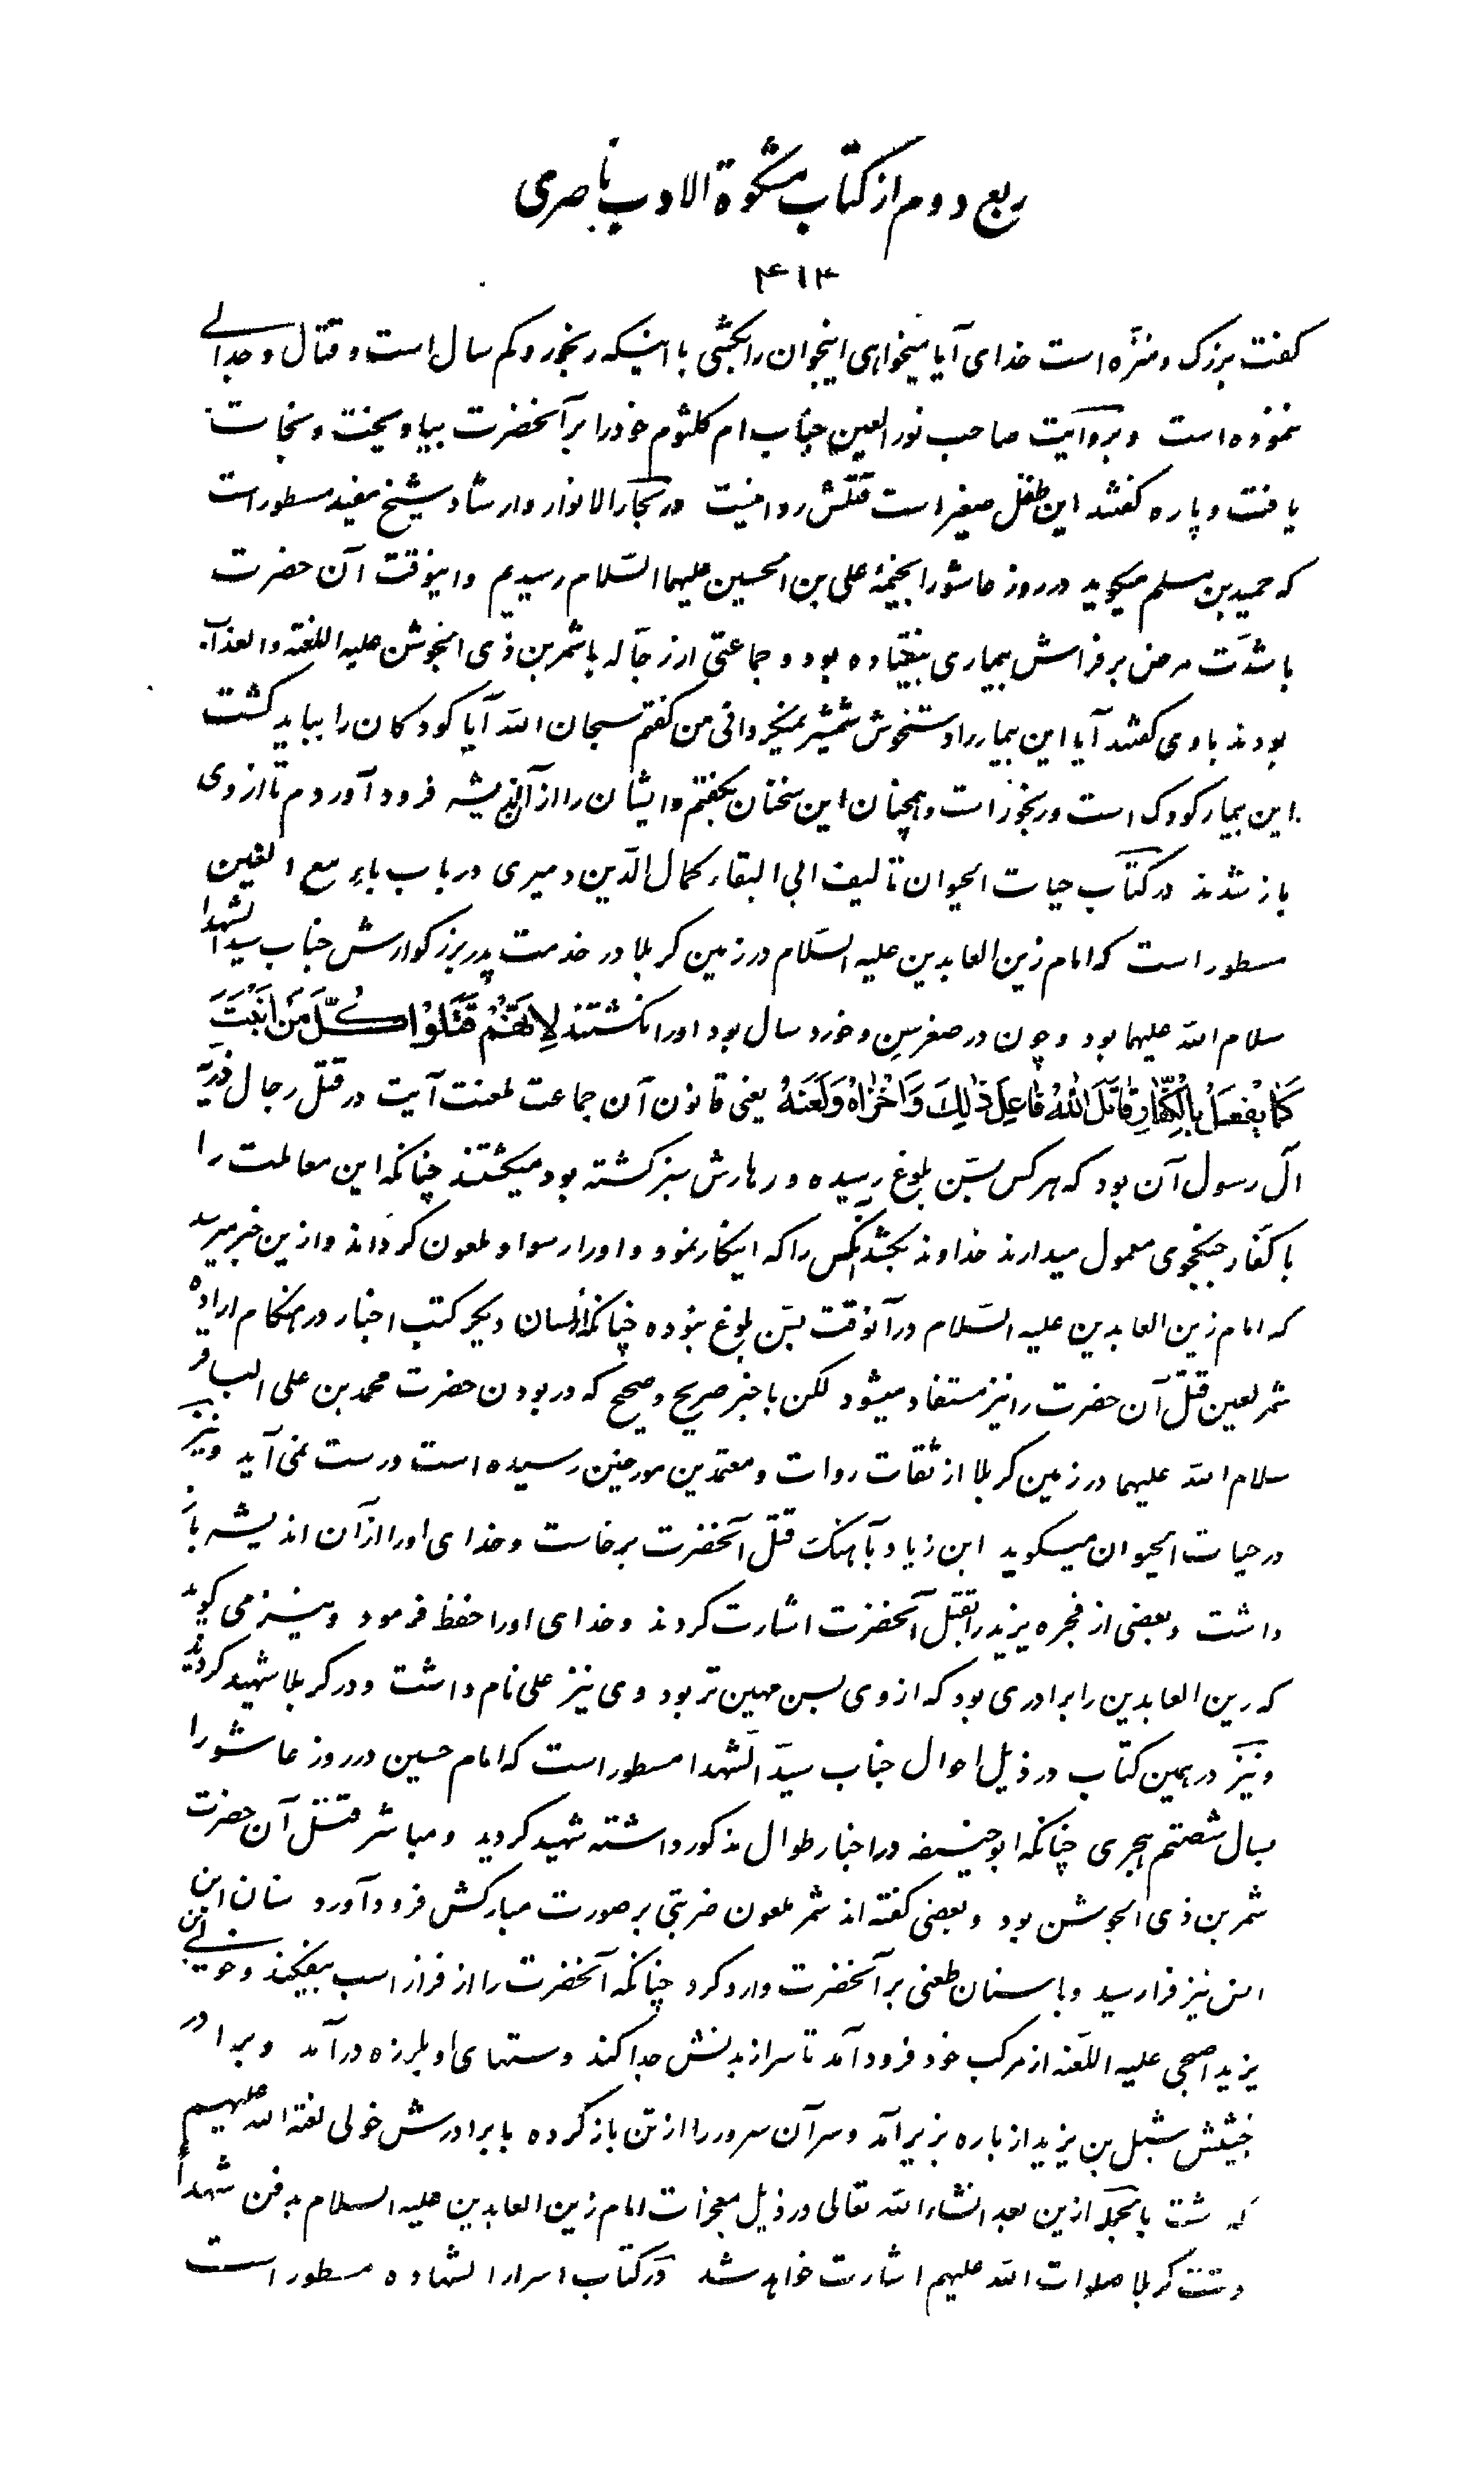 ربع دوم از کتاب مشکوة الادب ناصری
۴۱۴
گفت بزرگ و منزّه است خدای آیا میخواهی اینجوان را بکشی با اینکه رنجور و کم سال است و قتال و جدالی
ننموده است و بروایت صاحب نور العین جناب ام کلثوم خود را بر آنحضرت بیاویخت و نجات
یافت و پاره گفتند این طفل صغیر است قتلش روا نیست در بحار الانوار و ارشاد شیخ مفید مسطور است
که حمید بن مسلم میگوید در روز عاشورا بخیمهٔ علی بن الحسین علیهما السّلام رسیدیم و اینوقت آن حضرت
با شدّت مرض بر فراش بیماری بیفتاده بود و جماعتی از رجّاله با شمر بن ذی الجوشن علیه اللعنة والعذاب
بودند با وی گفتند آیا این بیمار را دستخوش شمشیر نمیگردانی من گفتم سبحان اللّه آیا کودکان را بباید کشت
این بیمار کودک است و رنجور است و همچنان این سخنان بگفتم و ایشان را از آن اندیشه فرود آوردم تا از وی
باز شدند در کتاب حیات الحیوان تألیف ابی البقاء کمال الدّین دمیری در باب باء مع الغین
مسطور است که امام زین العابدین علیه السّلام در زمین کربلا در خدمت پدر بزرگوارش جناب سید الشهدا
سلام اللّه علیهما بود و چون در صغر سن و خورد سال بود او را نکشتند لِاَنَّهُمْ قَتَلُوْا کُلَّ مَنْ اَنْبَتَ
کَمٰا یُفْعَلُ بِالْکُفّٰارِ قٰاتَلَ اللّٰهُ فٰاعِلَ ذٰلِکَ وَ اَخْزٰاهُ وَ لَعَنَهُ یعنی قانون آن جماعت لعنت آیت در قتل رجال ذریّه
آل رسول آن بود که هر کس بسّن بلوغ رسیده و زهارش سبز گشته بود میکشتند چنانکه این معاملت را
با کفّار جنگجوی معمول میدارند خداوند بکشد آنکس را که اینکار نمود و او را رسوا و ملعون گرداند و ازین خبر میرسد
که امام زین العابدین علیه السّلام در آنوقت بسّن بلوغ نبوده چنانکه از لسان دیگر کتب اخبار در هنگام اراده
شمر لعین قتل آن حضرت را نیز مستفاد میشود لکن با خبر صریح و صحیح که در بودن حضرت محمد بن علی الباقر
سلام اللّه علیهما در زمین کربلا از ثقات روات و معتمدین مورخین رسیده است درست نمی آید و نیز
در حیات الحیوان میگوید ابن زیاد بآهنگ قتل آنحضرت برخاست و خدای او را از آن اندیشه باز
داشت و بعضی از فجره یزید را بقتل آنحضرت اشارت کردند و خدای او را حفظ فرمود و نیز می گوید
که زین العابدین را برادری بود که از وی بسن مهین تر بود وی نیز علی نام داشت و در کربلا شهید گردید
و نیز در همین کتاب در ذیل احوال جناب سیدّ الشهدا مسطور است که امام حسین در روز عاشورا
بسال شصتم هجری چنانکه ابو حنیفه در اخبار طوال مذکور داشته شهید گردید و مباشر قتل آن حضرت
شمر بن ذی الجوشن بود و بعضی گفته اند شمر ملعون ضربتی بر صورت مبارکش فرود آورد سنان ابن
انس نیز فرا رسید و با سنان طعنی بر آنحضرت وارد کرد چنانکه آنحضرت را از فراز اسب بیفکند و خولی بن
یزید اصبحی علیه اللّعنه از مرکب خود فرود آمد تا سر از بدنش جدا کند دستهای او بلرزه در آمد و برادر
خبیثش شبل بن یزید از باره بزیر آمد و سر آن سرور را از تن باز کرده با برادرش خولی لعنة اللّه علیهم
گذاشت بالجمله ازین بعد انشاء اللّه تعالی در ذیل معجزات امام زین العابدین علیه السلام بدفن شهدای
دشت کربلا صلوات اللّه علیهم اشارت خواهد شد در کتاب اسرار الشهاده مسطور است